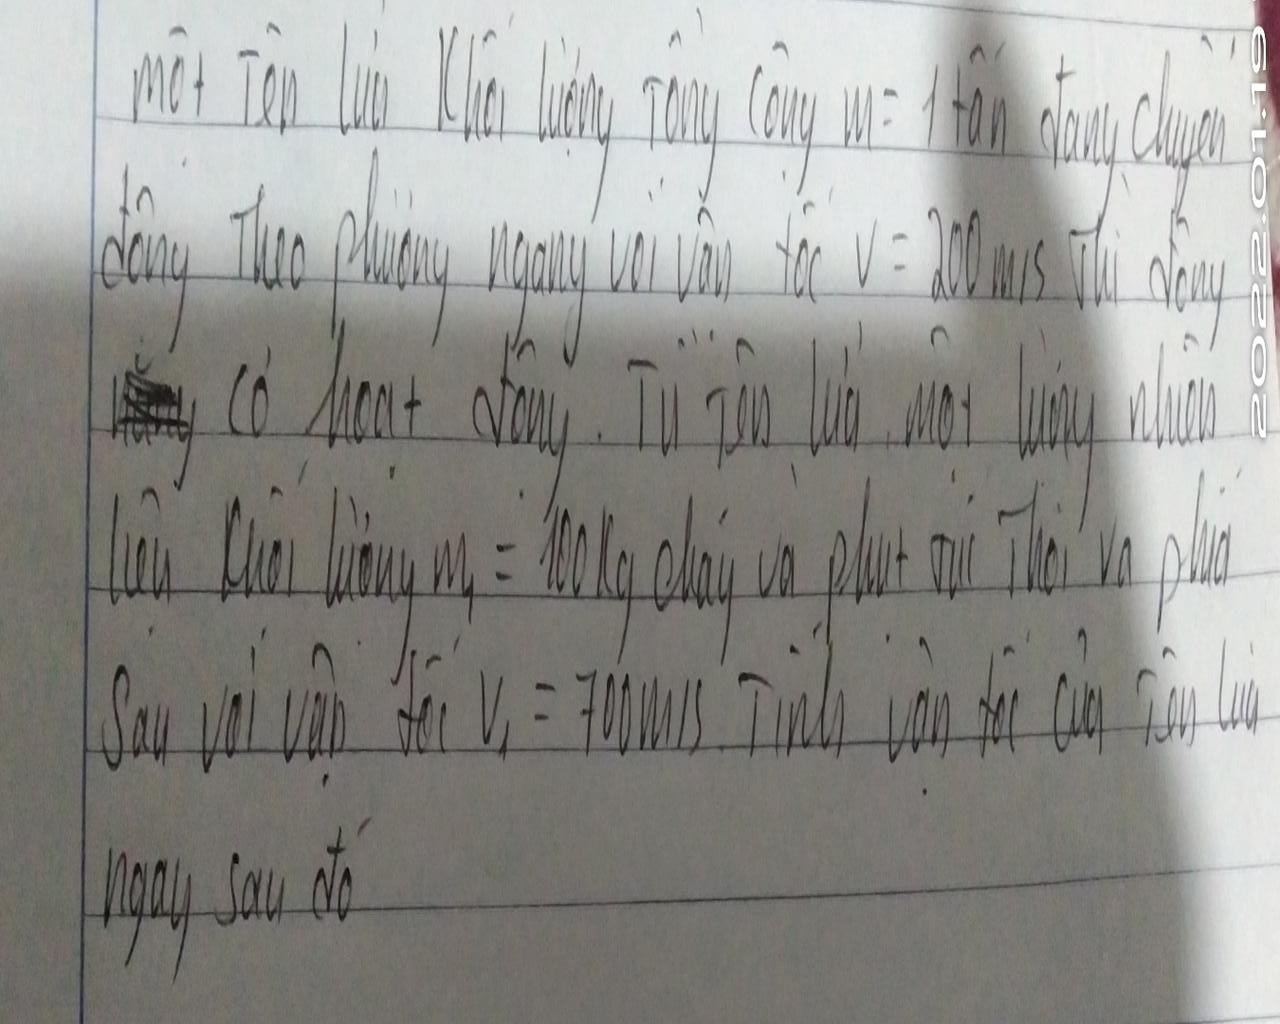 một Tên lửa Khối lượng Tổng Cộng m = 1 tấn đang chuyển
động Theo phương ngang với vận tốc v = 200 m/s Thì động
cơ hoạt động. Từ Tên lửa, một lượng nhiên
liệu Khối lượng m₁ = 100 Kg cháy và phụt tức Thời ra phía
Sau với vận tốc v₁ = 700 m/s. Tính vận tốc của Tên lửa
ngay sau đó
2022.01.19